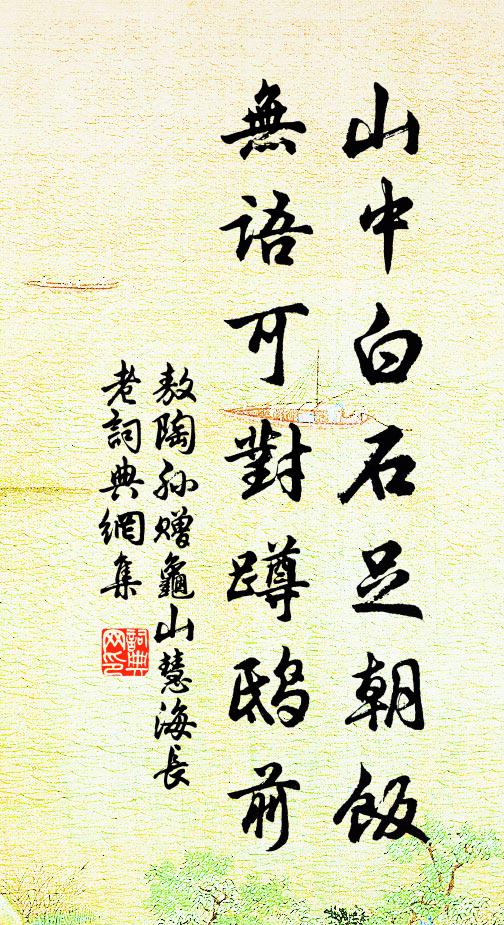 山中白石足朝飯
無語可對蹲鴟前
敖陶孫贈龜山慧海長
老詞典網集
詞典
网印